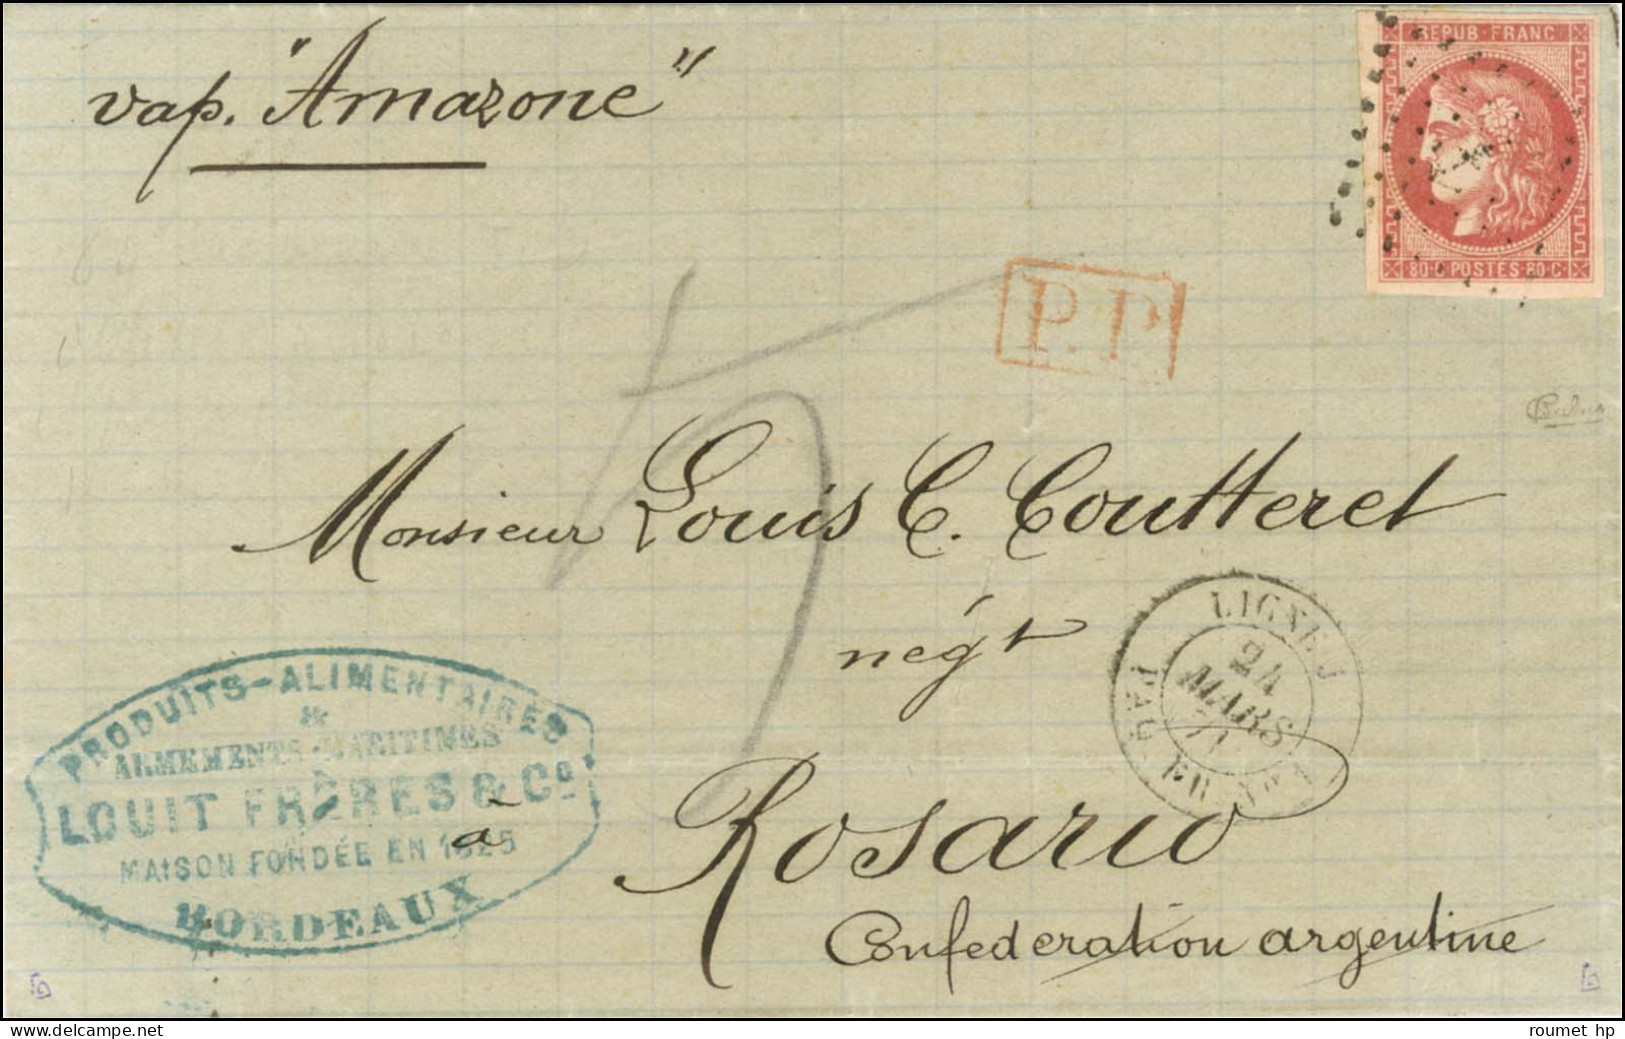 vap. "Amazone"
REPUB·FRANC
80·C·POSTES·80·C
P.P.
Monsieur Louis C. Coutteret
négt
LIGNE J
24
MARS
71
PAQ. FR. N°
PRODUITS-ALIMENTAIRES
&
ARMEMENTS-MARITIMES
LOUIT FRÈRES & Co
MAISON FONDÉE EN 1825
BORDEAUX
à Rosario
Confederation argentine
roumet hp